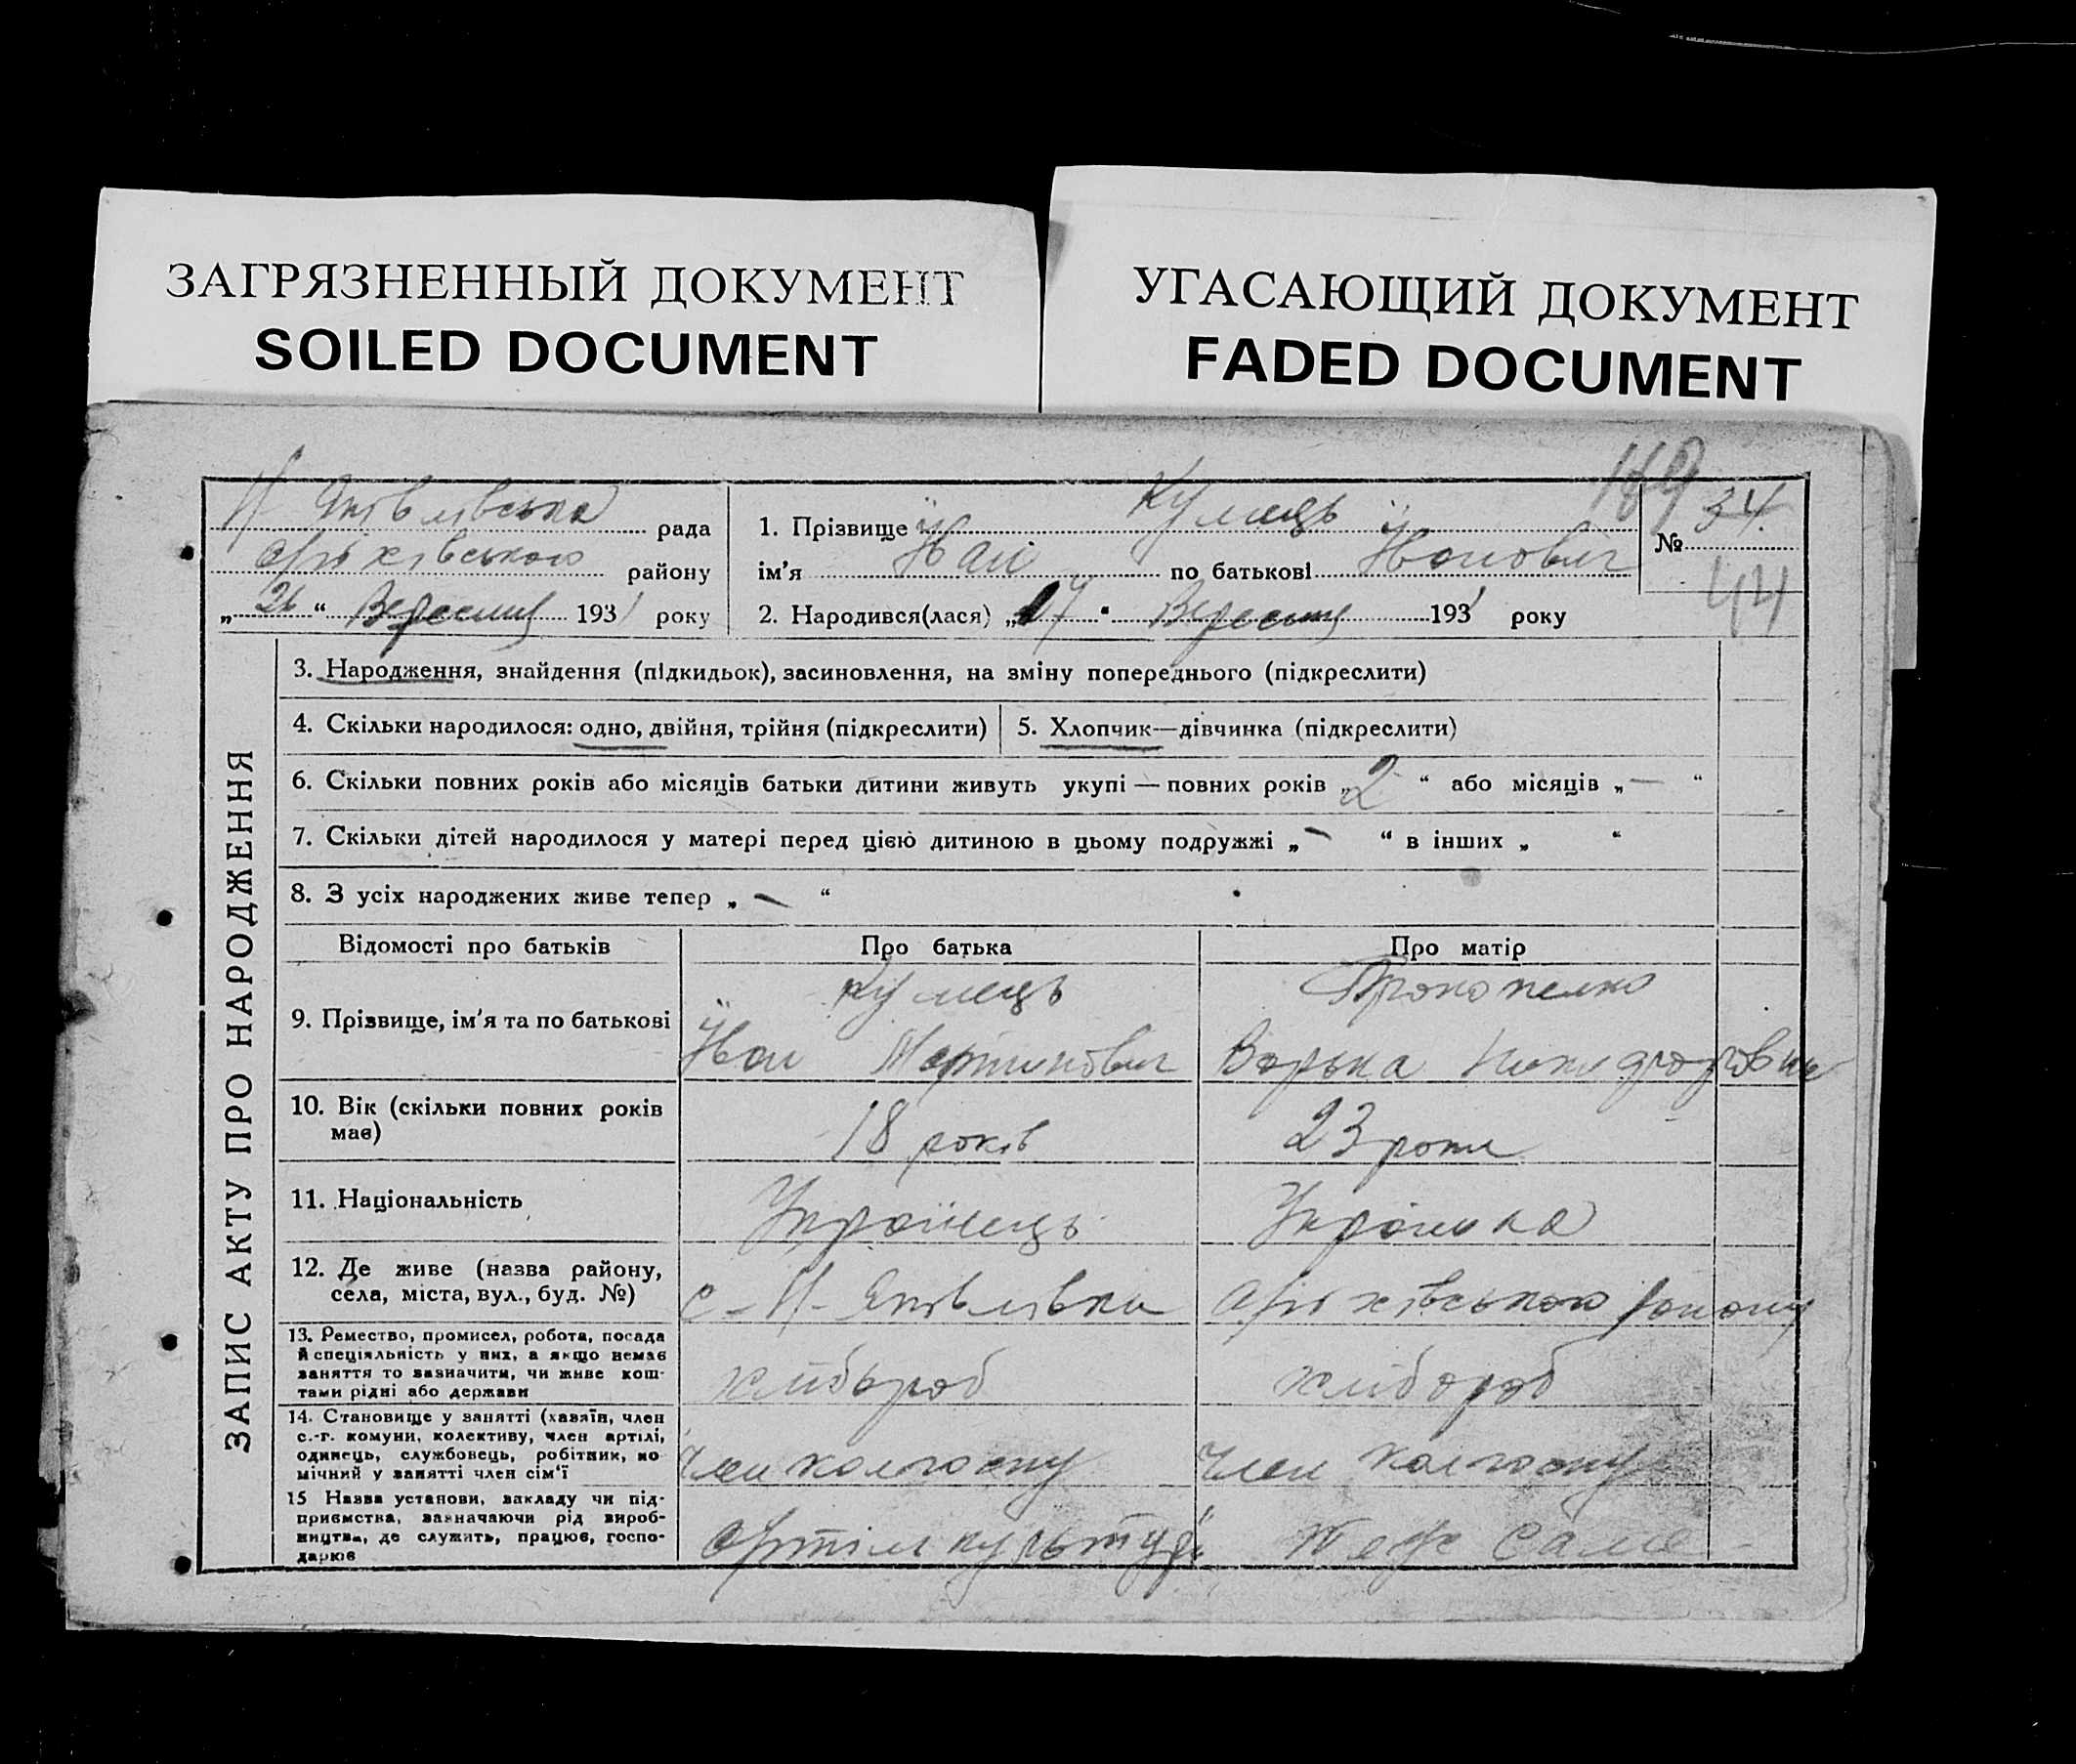 ЗАГРЯЗНЕННЫЙ ДОКУМЕНТ
SOILED DOCUMENT
УГАСАЮЩИЙ ДОКУМЕНТ
FADED DOCUMENT
169
Н Яківлівська рада
оріхівського району
„26“ Вересня 1931 року
1. Прізвище Кумець
ім'я Йван по батькові Йванович
2. Народився(лася) „17“ Вересня 1931 року
№ 34
44
ЗАПИС АКТУ ПРО НАРОДЖЕННЯ
3. Народження, знайдення (підкидьок), засиновлення, на зміну попереднього (підкреслити)
4. Скільки народилося: одно, двійня, трійня (підкреслити)
5. Хлопчик—дівчинка (підкреслити)
6. Скільки повних років або місяців батьки дитини живуть укупі — повних років „2“ або місяців „—“
7. Скільки дітей народилося у матері перед цією дитиною в цьому подружжі „—“ в інших „ “
8. З усіх народжених живе тепер „—“
Відомості про батьків Про батька Про матір
9. Прізвище, ім'я та по батькові
Кумець
Йван Мартинович
Прокопенко
Варька
10. Вік (скільки повних років
має)
18 років
23 роки
11. Національність
Українець
Українка
12. Де живе (назва району,
села, міста, вул., буд. №)
с-Н-Яківлівка
оріхівського району
13. Ремество, промисел, робота, посада
й спеціяльність у них, а якщо немає
заняття то зазначити, чи живе кош-
тами рідні або держави
хлібороб
хлібороб
14. Становище у занятті (хазяїн, член
с.-г. комуни, колективу, член артілі,
одинець, службовець, робітник, по
мічний у занятті член сім'ї
член колгоспу
член колгоспу
15 Назва установи, закладу чи під-
приємства, зазначаючи рід вироб-
ництва, де служить, працює, госпо-
дарює
Артіль
теж саме